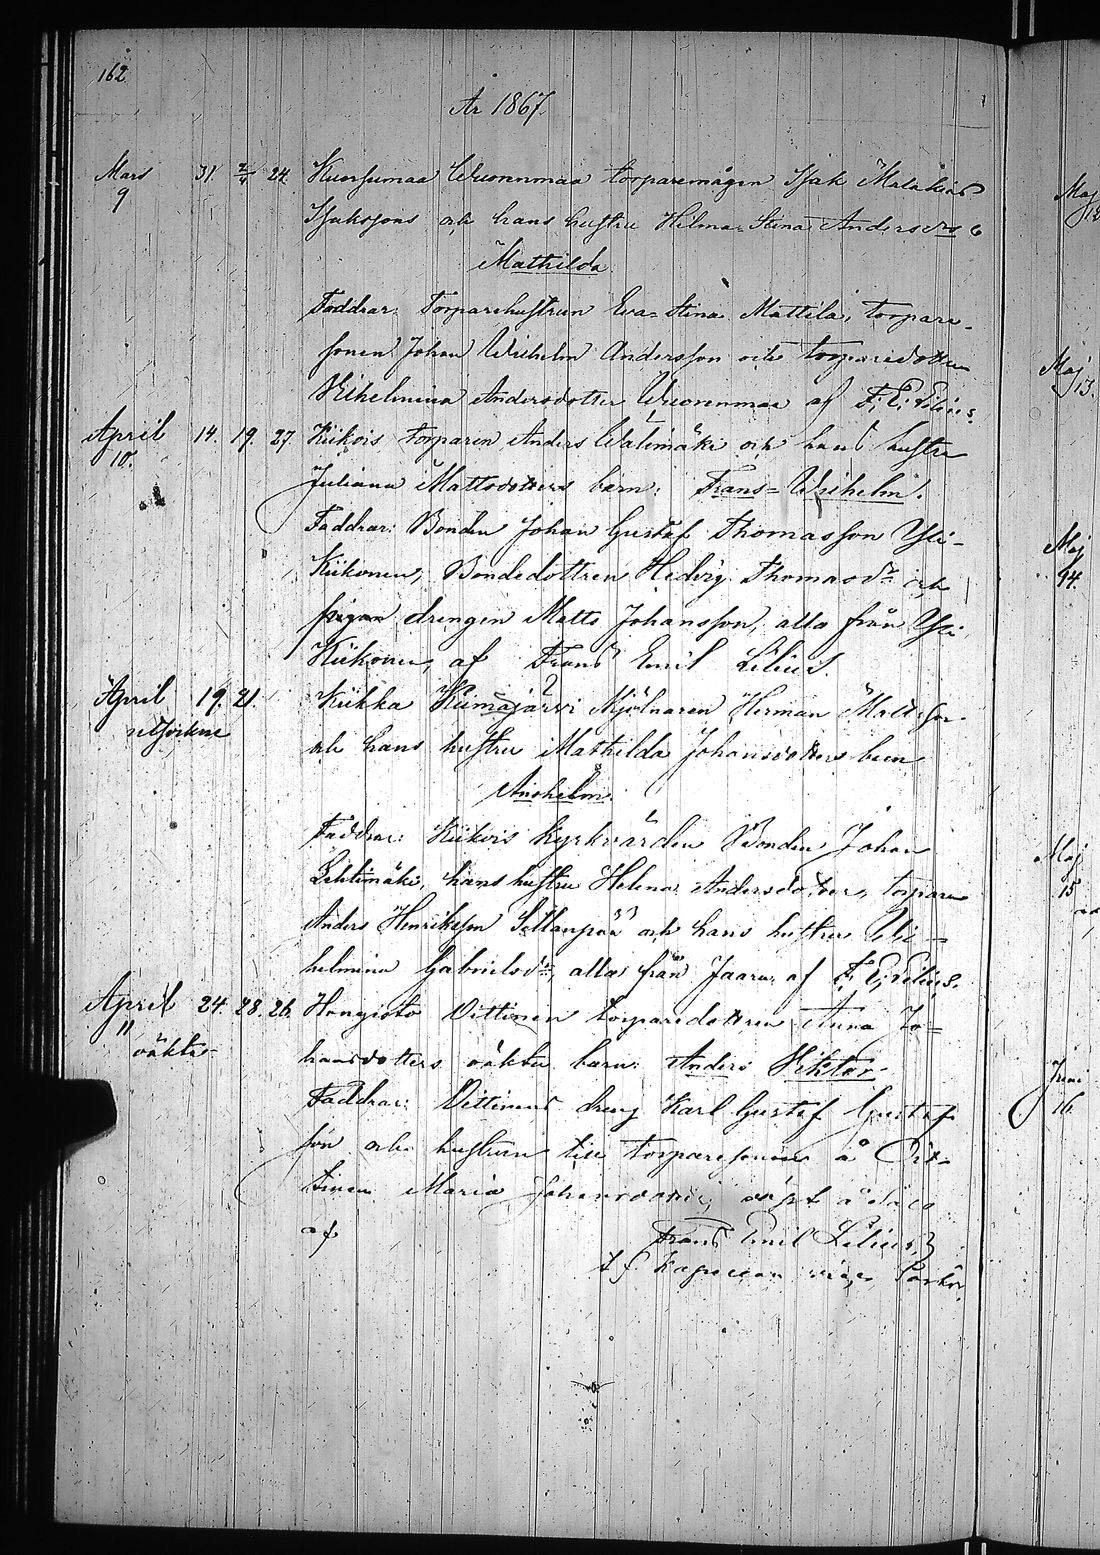 162
År 1867.
Mars 31. 2/4 24. Kuorsumaa Wuorenmaa torparemågen Isak Malakias
9 Isaksons och hans hustru Hilma Stina Andersdrs b
Mathilda.
Faddrar: Torparehustrun Eva-Stina Mattila, torpare-
sonen Johan Wilhelm Andersson och torparedottren
Vilhelmina Andersdotter Wuorenmaa af F. E. Lilius.
April 14. 19. 27. Kiikois torparen Anders Walimäki och hans hustru
10. Juliana Mattsdotters barn: Frans-Wilhelm.
Faddrar: Bonden Johan Gustaf Thomasson Yli-
Kiikonen, Bondedottren Hedvig Thomasdr och
pigan drengen Matts Johansson, alla från Yli
Kiikonen, af Frans Emil Lilius.
April 19. 21. Kiikka Kiimajärvi Mjölnaren Herman Mattsson
utsockne och hans hustru Mathilda Johansdotters barn
Anshelm.
Faddrar: Kiikois kyrkvärden Bonden Johan
Lehtimäki, hans hustru Helena Andersdotter, torparen
Anders Henriksson Sillanpää och hans hustru Vil-
helmina Gabrielsdr, alla från Jaara, af F. E. Lilius.
April 24. 28. 26. Hongisto Vittinen torparedottren Anna Jo-
11 hansdotters oäkta barn: Anders Viktor.
oäkta
Faddrar: Vittinens dreng Karl Gustaf Gustafs-
son och hustrun till torparesonen å Vit-
tinen Maria Johansdotter, döpt
af Frans Emil Lilius,
t. f. Kapellan vice Pastor.
Maj
Maj
13.
Maj
14.
Maj
15
Juni
16.